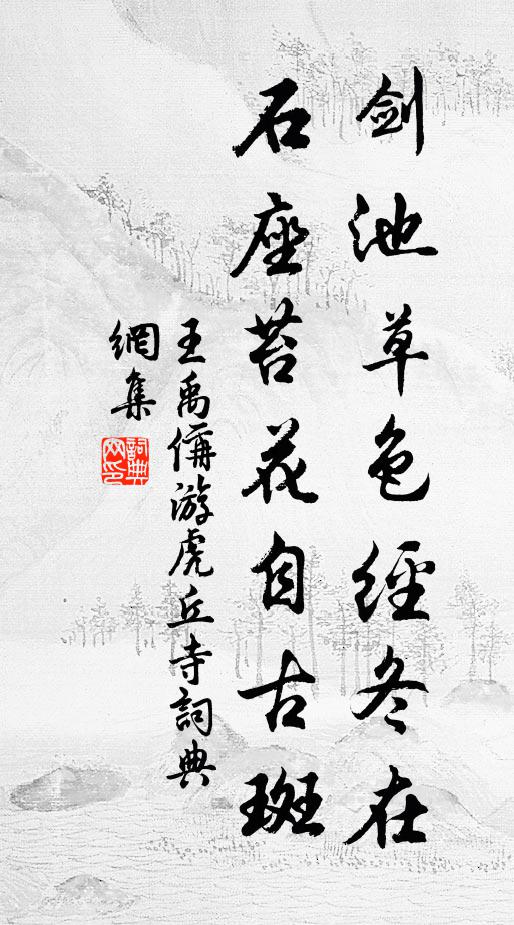 剑池草色經冬在
石座苔花自古斑
王禹偁游虎丘寺詞典
網集
詞典
网印